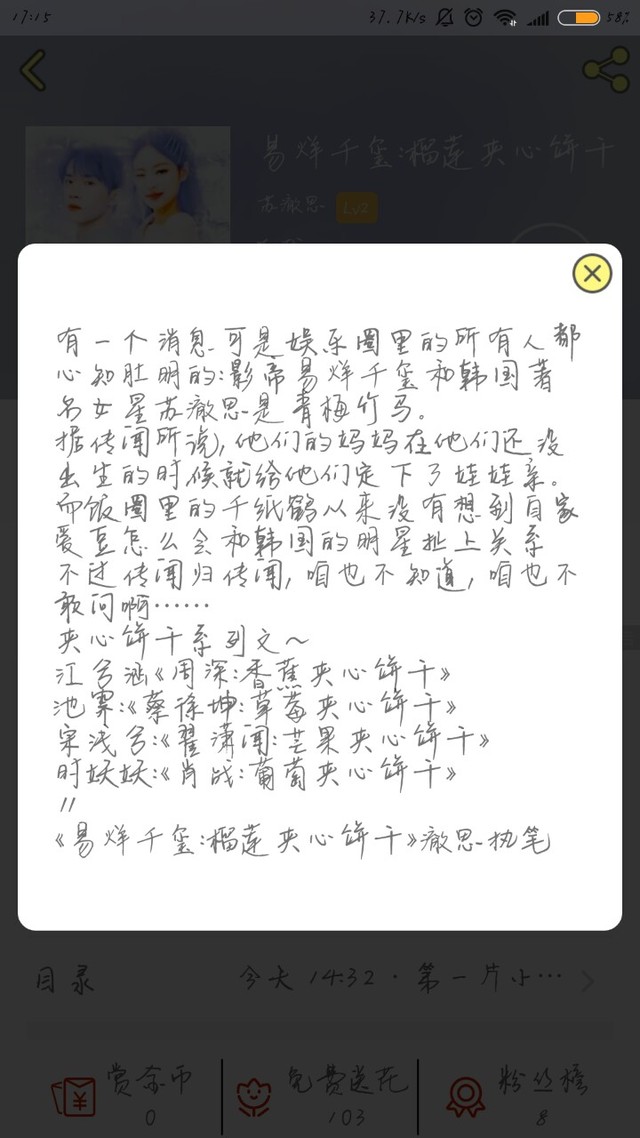 17:15 37.7K/s 58%
易烊千玺:榴莲夹心饼干
苏澈思 Lv2
有一个消息可是娱乐圈里的所有人都
心知肚明的:影帝易烊千玺和韩国著
名女星苏澈思是青梅竹马。
据传闻所说,他们的妈妈在他们还没
出生的时候就给他们定下了娃娃亲。
而饭圈里的千纸鹤从来没有想到自家
爱豆怎么会和韩国的明星扯上关系
不过传闻归传闻,咱也不知道,咱也不
敢问啊……
夹心饼干系列文~
江兮涵《周深:香蕉夹心饼干》
池霁:《蔡徐坤:草莓夹心饼干》
宋浅兮:《翟潇闻:芒果夹心饼干》
时妖妖:《肖战:葡萄夹心饼干》
//
《易烊千玺:榴莲夹心饼干》澈思执笔
目录 今天 14:32 · 第一片小…
赏金币 免费送花 粉丝榜
0 103 8